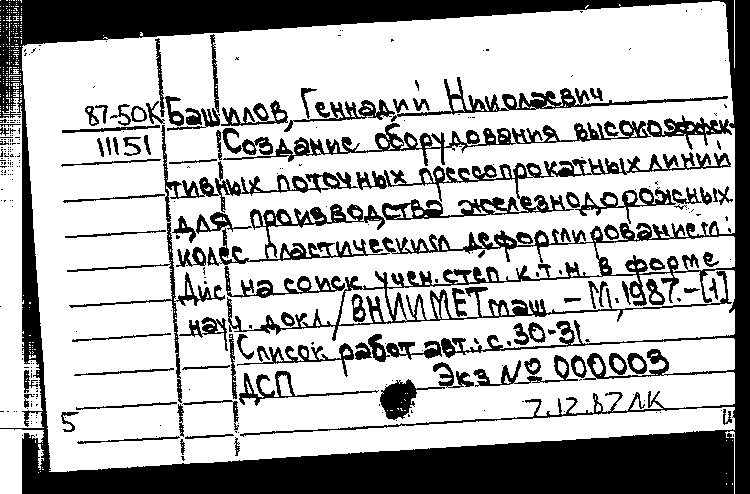 87-50К Башилов, Геннадий Николаевич.
11151 Создание оборудования высокоэффек-
тивных поточных прессопрокатных линий
для производства железнодорожных
колес пластическим деформированием:
Дис. на соиск. учен. степ. к.т.н. в форме
науч. докл./ВНИИМЕТмаш. – М., 1987.-[1],
Список работ авт.: с.30-31.
ДСП Экз № 000003
7.12.87 ЛК
5